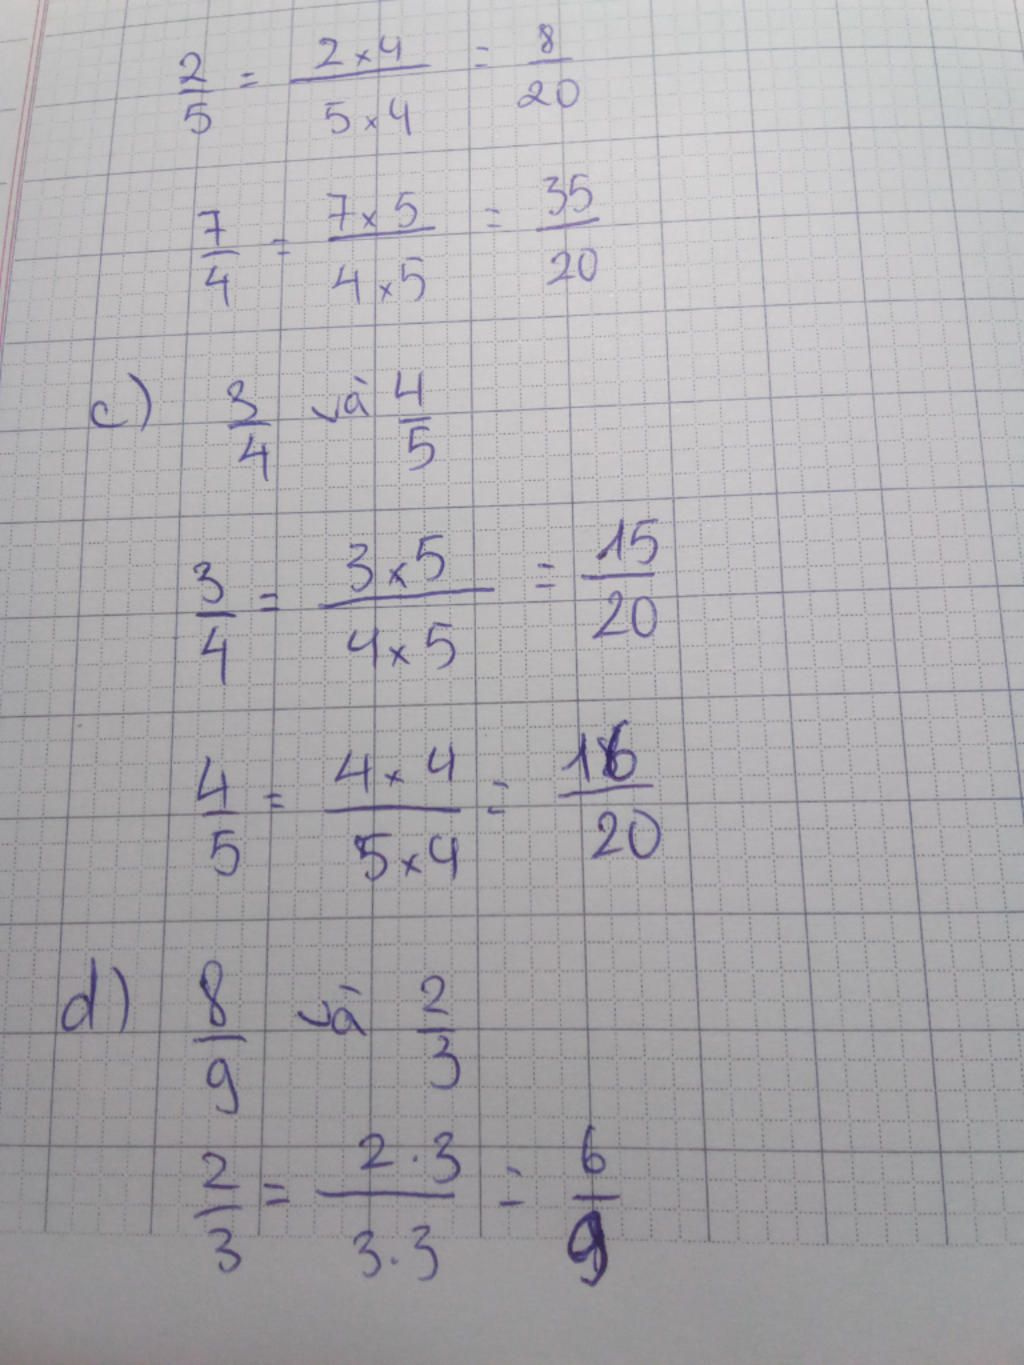 2/5 = 2×4/5×4 = 8/20
7/4 = 7×5/4×5 = 35/20
c) 3/4 và 4/5
3/4 = 3×5/4×5 = 15/20
4/5 = 4×4/5×4 = 16/20
d) 8/9 và 2/3
2/3 = 2.3/3.3 = 6/9